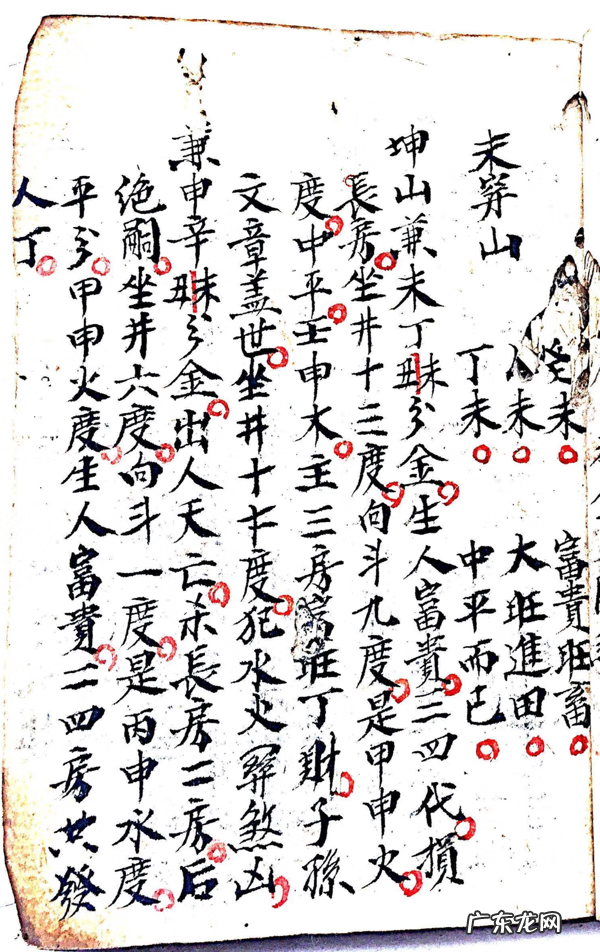 癸未。富貴旺畜。
未。大旺進田。
未葬山
丁未。中平而已。
坤山兼未丁丑未分金。生人富貴。三四代損
長房。坐井十三度。向斗九度。是甲申火
度。中平。壬申木。主三房富旺丁財。子孫
文章盖世。坐井十七度。犯水火罪煞凶。
兼申辛丑未分金。出人夭亡。杀長房二房。后
绝嗣。坐井六度。向斗一度。是丙申水度。
平分。甲申火度。生人富貴。二四房共發
人丁。
广东龙网